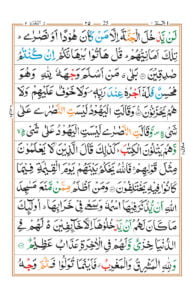 لَنْ يَّدْخُلَ الْجَنَّةَ اِلَّا مَنْ كَانَ هُوْدًا اَوْ نَصٰرٰى ؕ
تِلْكَ اَمَانِيُّهُمْ ؕ قُلْ هَاتُوْا بُرْهَانَكُمْ اِنْ كُنْتُمْ
صٰدِقِيْنَ ۝ بَلٰى ۗ مَنْ اَسْلَمَ وَجْهَهٗ لِلّٰهِ وَهُوَ
مُحْسِنٌ فَلَهٗۤ اَجْرُهٗ عِنْدَ رَبِّهٖ ۪ وَلَا خَوْفٌ عَلَيْهِمْ وَلَا
هُمْ يَحْزَنُوْنَ ۝ وَقَالَتِ الْيَهُوْدُ لَيْسَتِ النَّصٰرٰى عَلٰى
شَيْءٍ ۪ وَّقَالَتِ النَّصٰرٰى لَيْسَتِ الْيَهُوْدُ عَلٰى شَيْءٍ ۙ
وَّهُمْ يَتْلُوْنَ الْكِتٰبَ ؕ كَذٰلِكَ قَالَ الَّذِيْنَ لَا يَعْلَمُوْنَ
مِثْلَ قَوْلِهِمْ ۚ فَاللّٰهُ يَحْكُمُ بَيْنَهُمْ يَوْمَ الْقِيٰمَةِ فِيْمَا
كَانُوْا فِيْهِ يَخْتَلِفُوْنَ ۝ وَمَنْ اَظْلَمُ مِمَّنْ مَّنَعَ مَسٰجِدَ
اللّٰهِ اَنْ يُّذْكَرَ فِيْهَا اسْمُهٗ وَسَعٰى فِيْ خَرَابِهَا ؕ اُولٰٓئِكَ
مَا كَانَ لَهُمْ اَنْ يَّدْخُلُوْهَاۤ اِلَّا خَآئِفِيْنَ ؕ لَهُمْ فِي
الدُّنْيَا خِزْيٌ وَّلَهُمْ فِي الْاٰخِرَةِ عَذَابٌ عَظِيْمٌ ۝
وَلِلّٰهِ الْمَشْرِقُ وَالْمَغْرِبُ ۗ فَاَيْنَمَا تُوَلُّوْا فَثَمَّ وَجْهُ